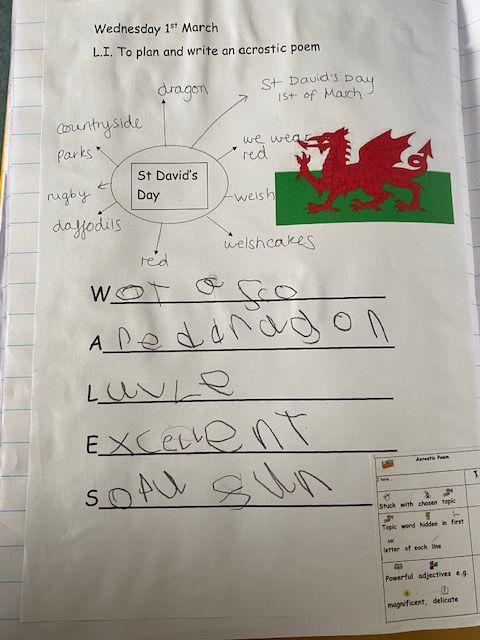 Wednesday 1st March
L.I. To plan and write an acrostic poem
dragon
St David's Day
1st of March
countryside
we wear
red
parks
St David's
Day
rugby
welsh
daffodils
welshcakes
red
Wot a
A red dragon
Luvle
Excellent
Sun
Acrostic Poem
I have...
Stuck with chosen topic
Topic word hidden in first
letter of each line
Powerful adjectives e.g.
magnificent, delicate